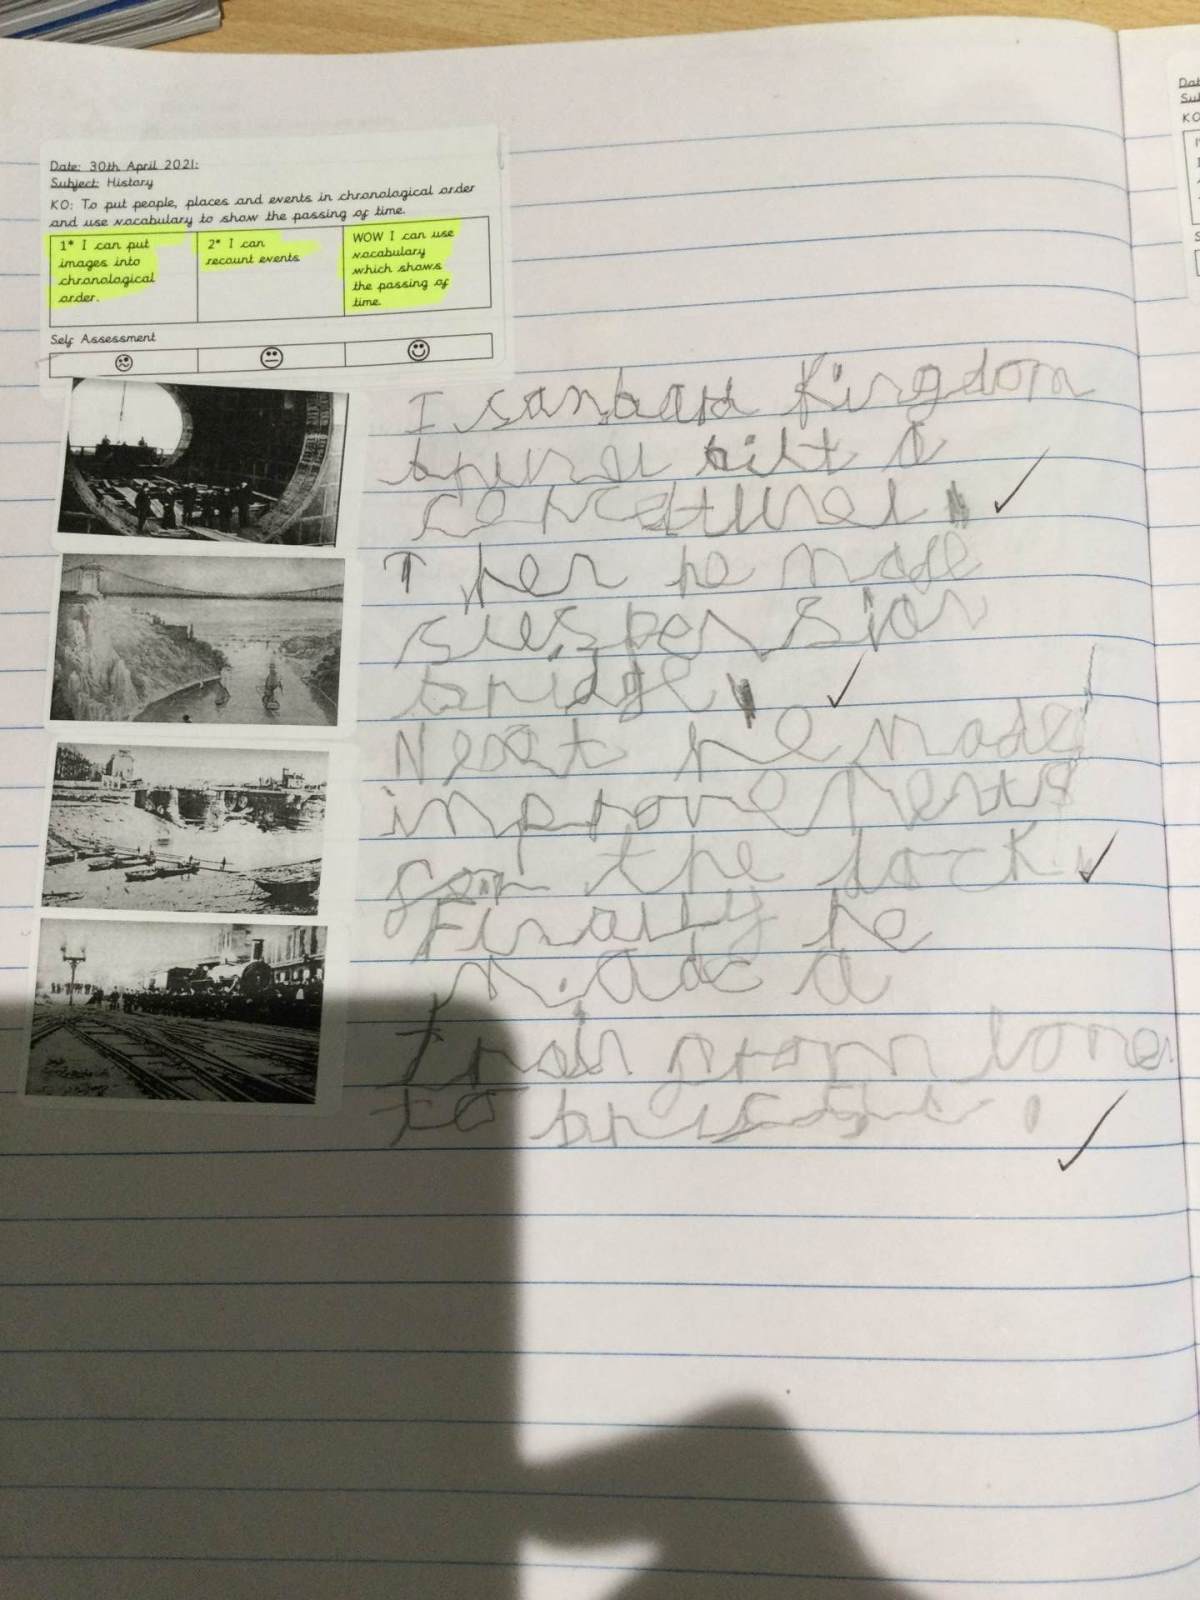 Date: 30th April 2021:
Subject: History
KO: To put people, places and events in chronological order
and use vocabulary to show the passing of time.
1* I can put
images into
chronological
order.
2* I can
recount events
WOW I can use
vocabulary
which shows
the passing of
time.
Self Assessment
I Kingdom
a
Then he made
suspension
bridge
Next he made
improvements
the dock
Finally he
made a
from
to
Dat
Sub
KO